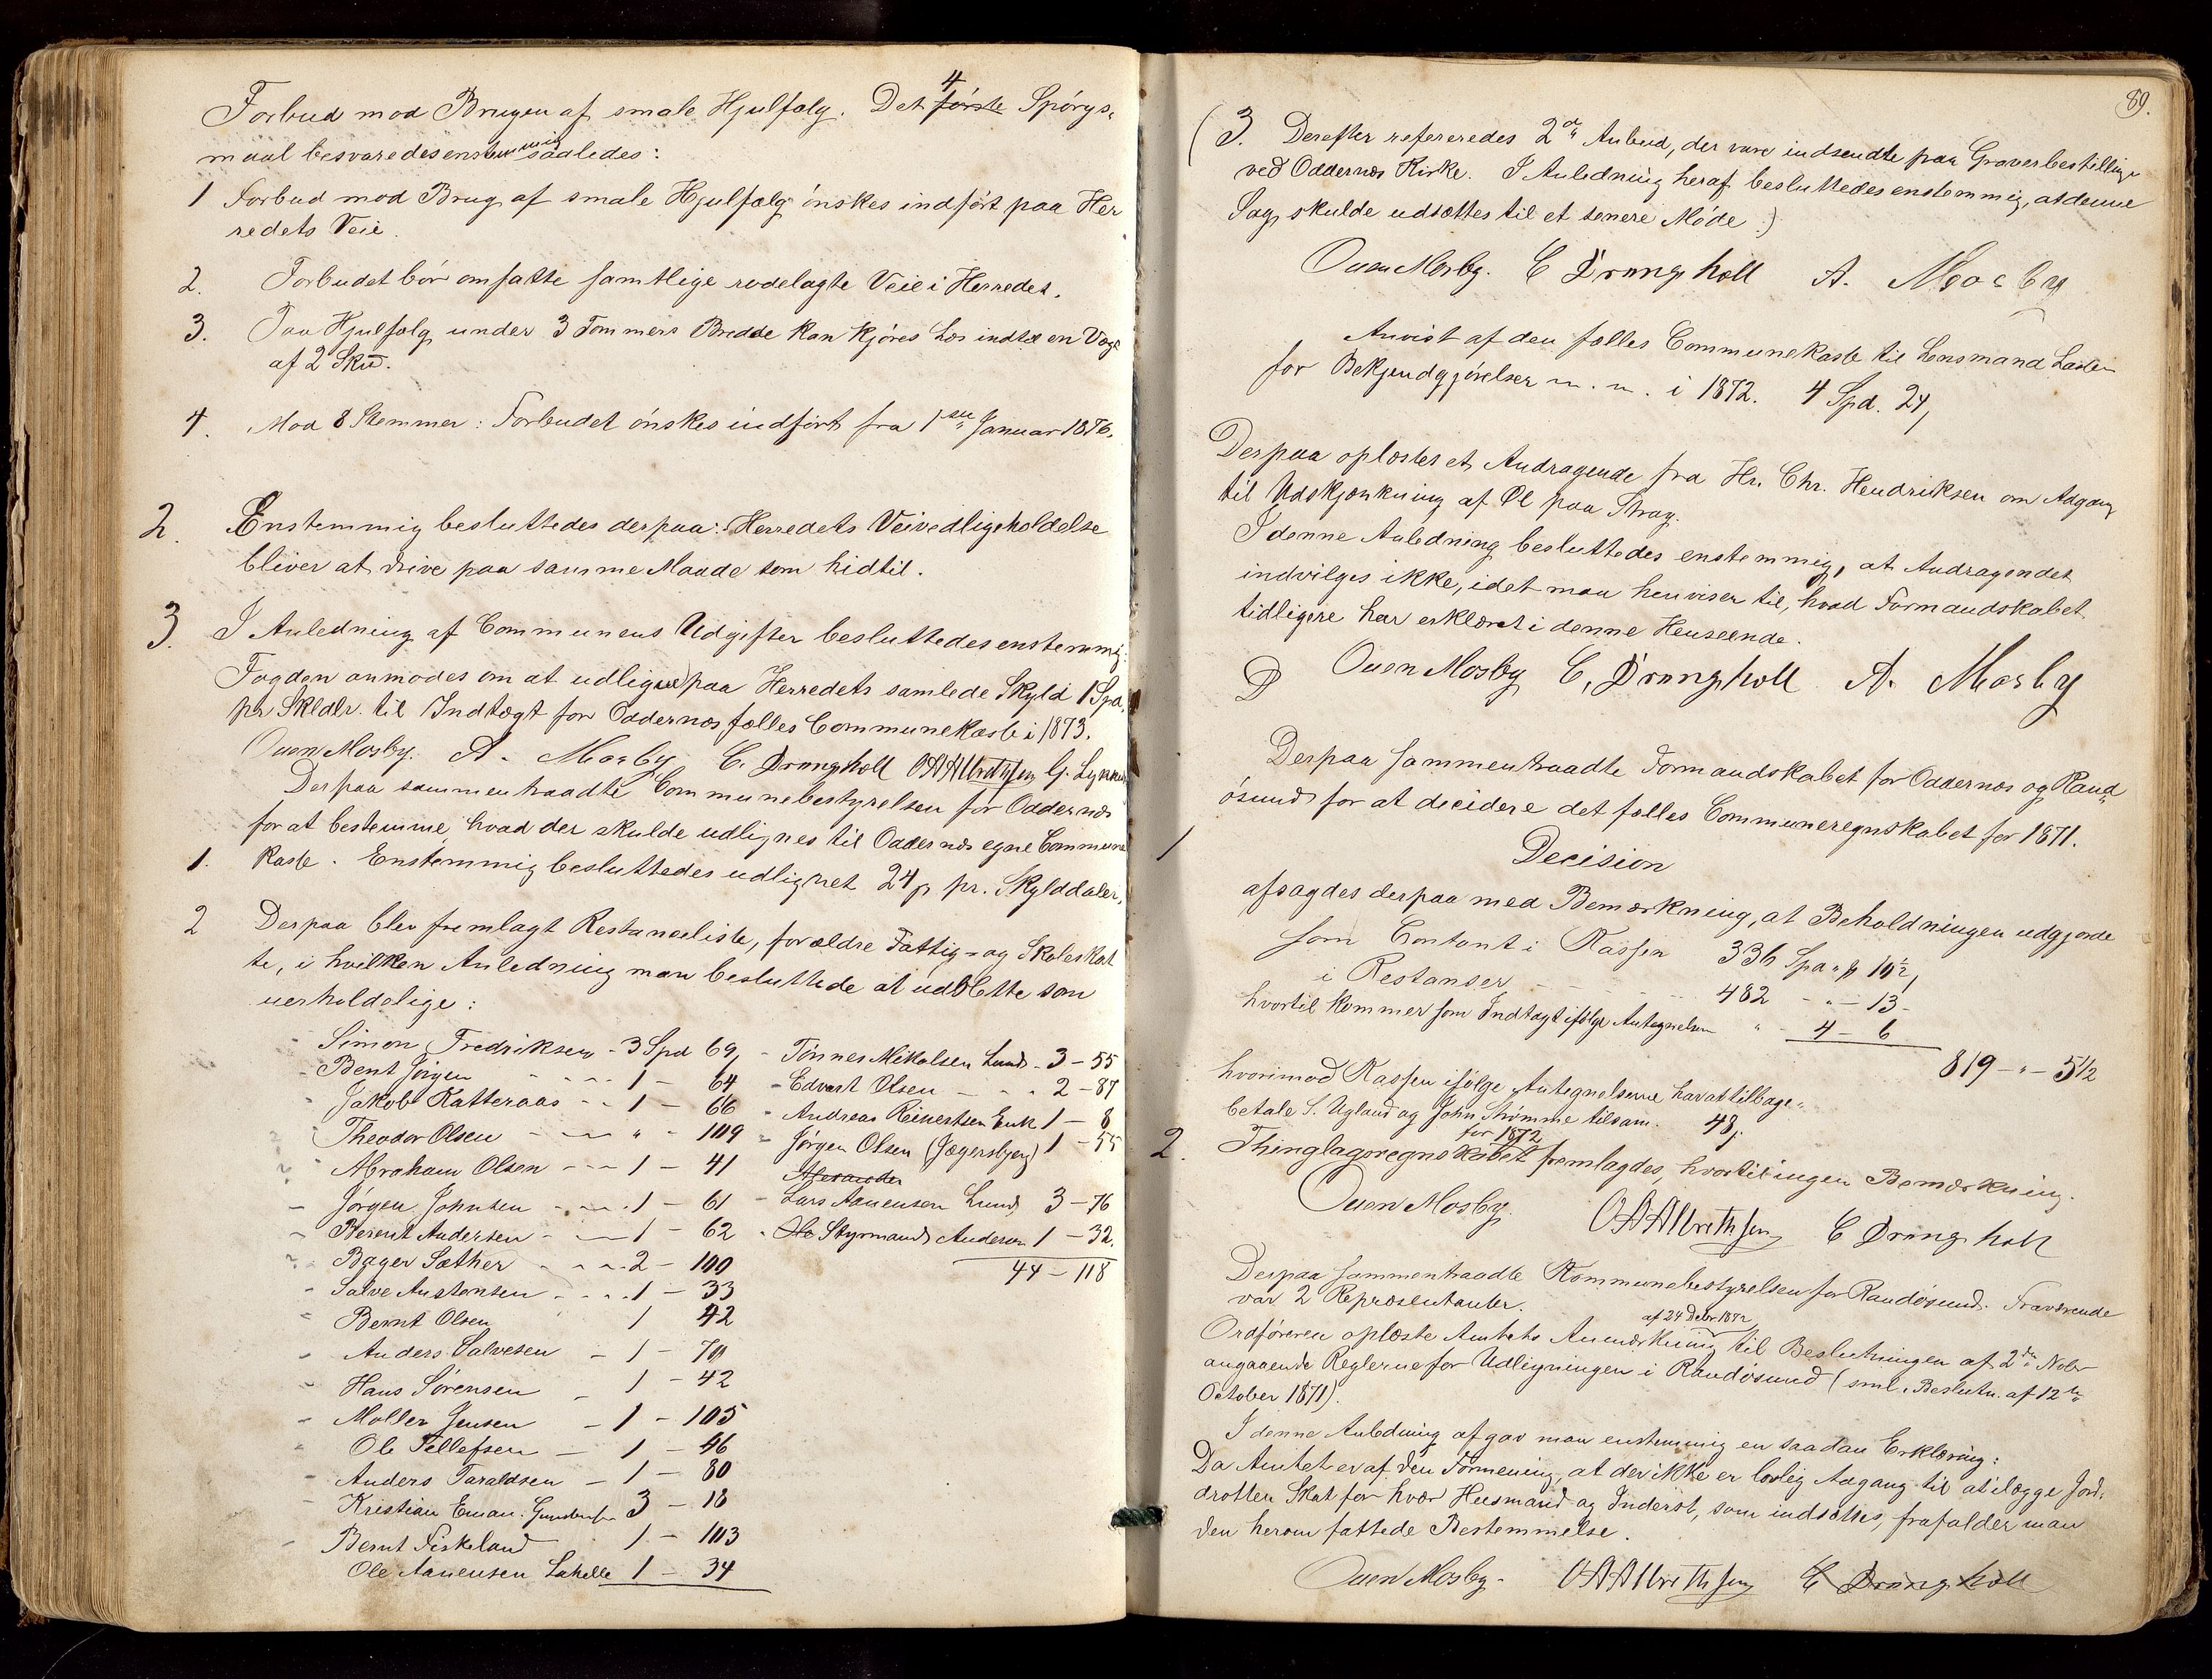 Forbud mod Brugen af smale Hjulfælg. Det 4 første Spørgs-
maal besvaredes enstemmig saaledes:
1 Forbud mod Brug af smale Hjulfælg ønskes indført paa Her
redets Veie.
2. Forbudet bør omfatte samtlige rodelagte Veie i Herredet.
3. Paa Hjulfælg under 3 Tommers Bredde kan kjøres Læs indtil en Vægt
af 2 Sk℔.
4. Mod 8 Stemmer: Forbudet ønskes indført fra 1ste Januar 1876.
2. Enstemmig besluttedes derpaa: Herredets Veivedligeholdelse
bliver at drive paa samme Maade som hidtil.
3. I Anledning af Communens Udgifter besluttedes enstemmig:
Fogden anmodes om at udligne paa Herredets samlede Skyld 1 Spd.
pr Skldlr. til Indtægt for Oddernæs fælles Communekasse i 1873.
Ouen Mosby. A. Mosby C. Drangholt O A Albrethsen G.
Derpaa sammentraadte Communebestyrelsen for Oddernæs
for at bestemme hvad der skulde udlignes til Oddernæs egne Commune
1. kasse. Enstemmig besluttedes udlignet 24 β pr. Skylddaler.
2 Derpaa blev fremlagt Restanceliste, for ældre Fattig- og Skoleskat
te, i hvilken Anledning man besluttede at udslette som
uerholdelige:
- Simon Fredriksen - 3 Spd 69, - Tønnes Mikalsen Lund - 3 - 55
- Bent Jörgen - 1 - 64 - Edvart Olsen - 2 - 87
- Jakob Katteraas - 1 - 66 - Andreas Reinertsen Enk 1 - 8
Theodor Olsen - " - 109 - Jørgen Olsen (Jægersbjerg) 1 - 55
Abraham Olsen - 1 - 41 Alexander
- Jørgen Johnsen - 1 - 61 - Lars Aanensen Lund 3 - 76
- Berent Andersen - 1 - 62 - Styrmand Anderson 1 - 32.
- Bager Sæther - 2 - 100 44 - 118
- Salve Austensen - 1 - 33
- Bernt Olsen 1 42
- Anders Salvesen - 1 - 70
- Hans Sørensen - 1 - 42
- Møller Jensen - 1 - 105
- Ole Tellefsen - 1 - 46
- Anders Taraldsen - 1 - 80
- Kristian Eman. Gundersen 3 - 18
- Bernt Fiskeland 1 - 103
Ole Aanensen Lahelle 1 - 34
89.
(3. Derefter refereredes 2de Anbud, der vare indsendte paa Graverbestilling
ved Oddernæs Kirke. I Anledning heraf besluttedes enstemmig, at denne
Sag skulde udsættes til et senere Møde.)
Ouen Mosby. C Drangholt A. Mosby
Anvist af den fælles Communekasse til Lensmand
for Bekjendtgjørelser m. m. i 1872. 4 Spd. 24,
Derpaa oplæstes et Andragende fra Hr. Chr. Hendriksen om Adgang
til Udskjænkning af Øl paa Stray.
I denne Anledning besluttedes enstemmig, at Andragendet
indvilges ikke, idet man henviser til, hvad Formandskabet
tidligere har erklæret i denne Henseende.
D Ouen Mosby C. Drangholt A. Mosby
Derpaa sammentraadte Formandskabet for Oddernæs og Rand
øsund for at decidere det fælles Communeregnskabet for 1871.
1 Decision
afsagdes derpaa med Bemærkning, at Beholdningen udgjorde
som Contant i Kassen 336 Spd " β 10½,
i Restanser - 482 - " - 13 -
hvortil kommer som Indtægt ifølge Antegnelsen " - 4 - 6
819 - " - 5½
hvorimod Kassen ifølge Antegnelserne har at tilbage-
betale S. Ugland og John Strømme tilsam. 48 β.
2. Thinglagsregnskabet for 1872 fremlagdes, hvortil ingen Bemærkning.
Ouen Mosby. O A Albrethsen C Drangholt
Derpaa sammentraadte Kommunebestyrelsen for Randøsund. Fraværende
var 2 Repræsentanter.
af 24 Debr 1872
Ordføreren oplæste Amtets Anmærkning til Beslutningen af 2den Nobr
angaaende Reglerne for Udligningen i Randøsund (sml. Beslutn. af 12te
October 1871).
I denne Anledning afgav man enstemmig en saadan Erklæring:
Da Amtet er af den Formening, at der ikke er lovlig Adgang til at ilægge Jord-
drotten Skat for hver Husmand og Inderst, som indsættes, frafalder man
den herom fattede Bestemmelse.
Ouen Mosby. O A Albrethsen C Drangholt